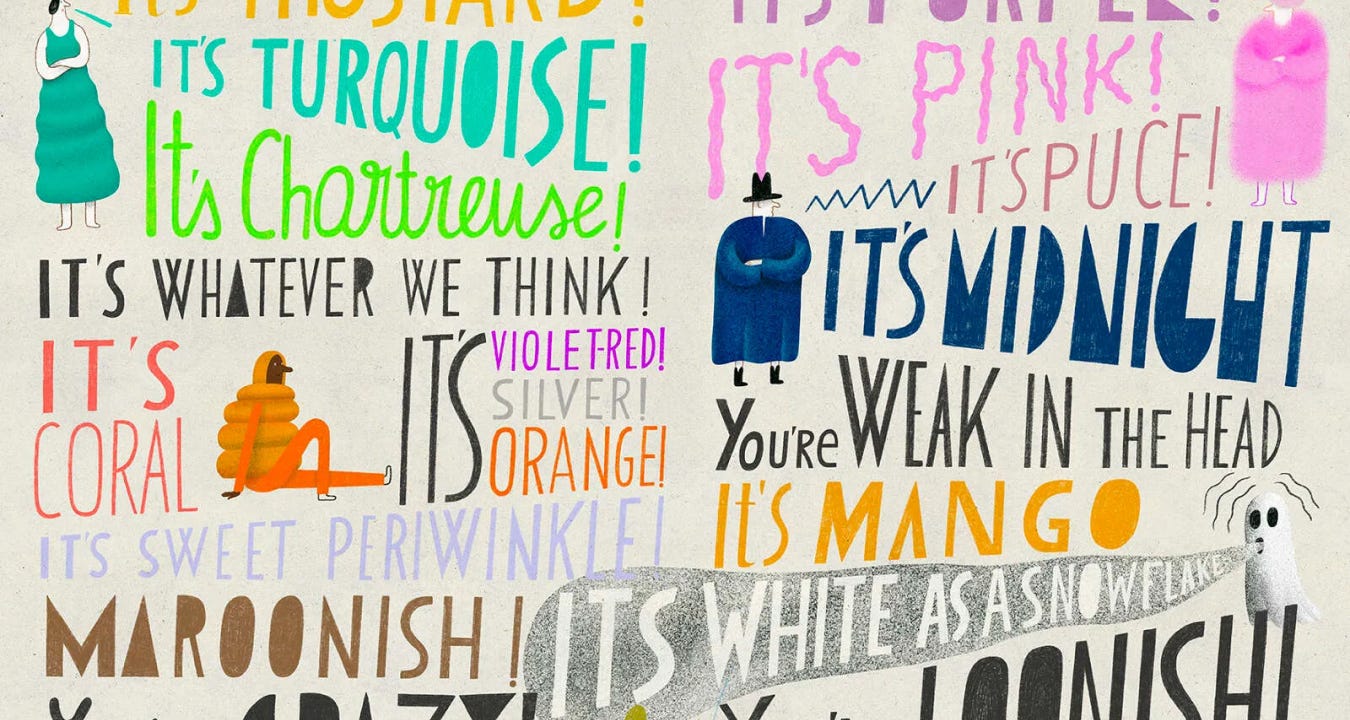 IT'S MUSTARD!
IT'S TURQUOISE!
It's Chartreuse!
IT'S WHATEVER WE THINK!
IT'S
CORAL
IT'S
VIOLET-RED!
SILVER!
ORANGE!
IT'S SWEET PERIWINKLE!
MAROONISH!
CRAZY!
IT'S PURPLE!
IT'S PINK!
IT'S PUCE!
IT'S MIDNIGHT
You're WEAK IN THE HEAD
It's MANGO
IT'S WHITE AS A SNOWFLAKE
LOONISH!